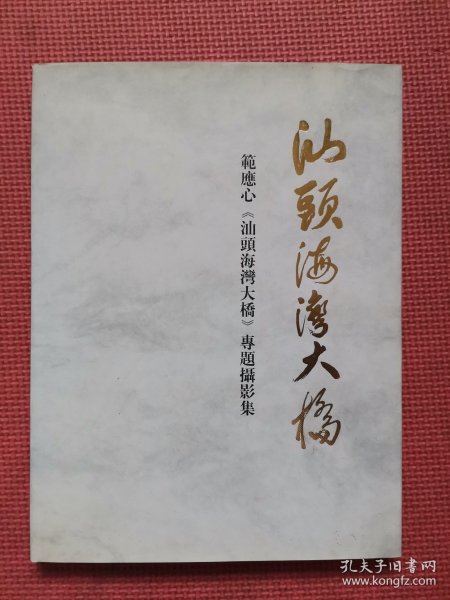 汕頭海灣大橋
範應心《汕頭海灣大橋》專題攝影集
孔夫子旧书网
www.kongfz.com